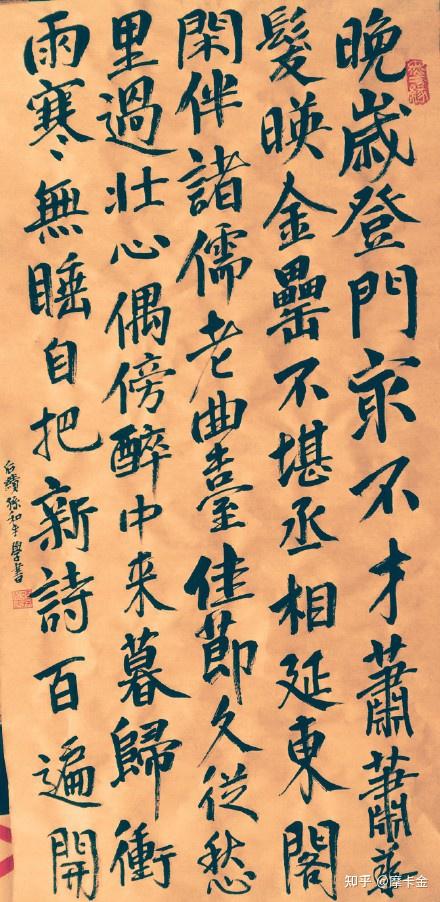 晚歲登門最不才蕭蕭華
髮暎金罍不堪丞相延東閣
閑伴諸儒老曲臺佳節久從愁
里過壯心偶傍醉中来暮歸衝
雨寒無睡自把新詩百遍開
孫和平學書
知乎 @摩卡金